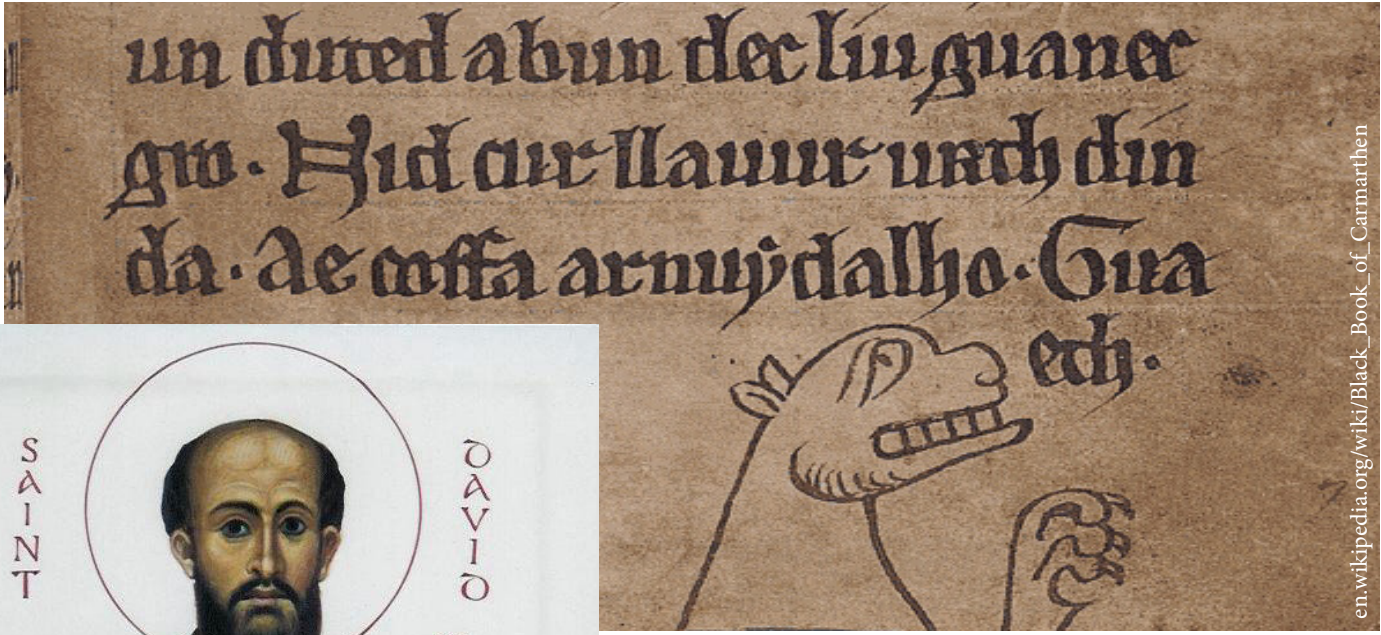 un duted abun dec liu guanec
gro. Nid cur llauur urth din
da. Ae coffa arnuẏ dalho. Gua
ech.
SAINT
DAVID
en.wikipedia.org/wiki/Black_Book_of_Carmarthen